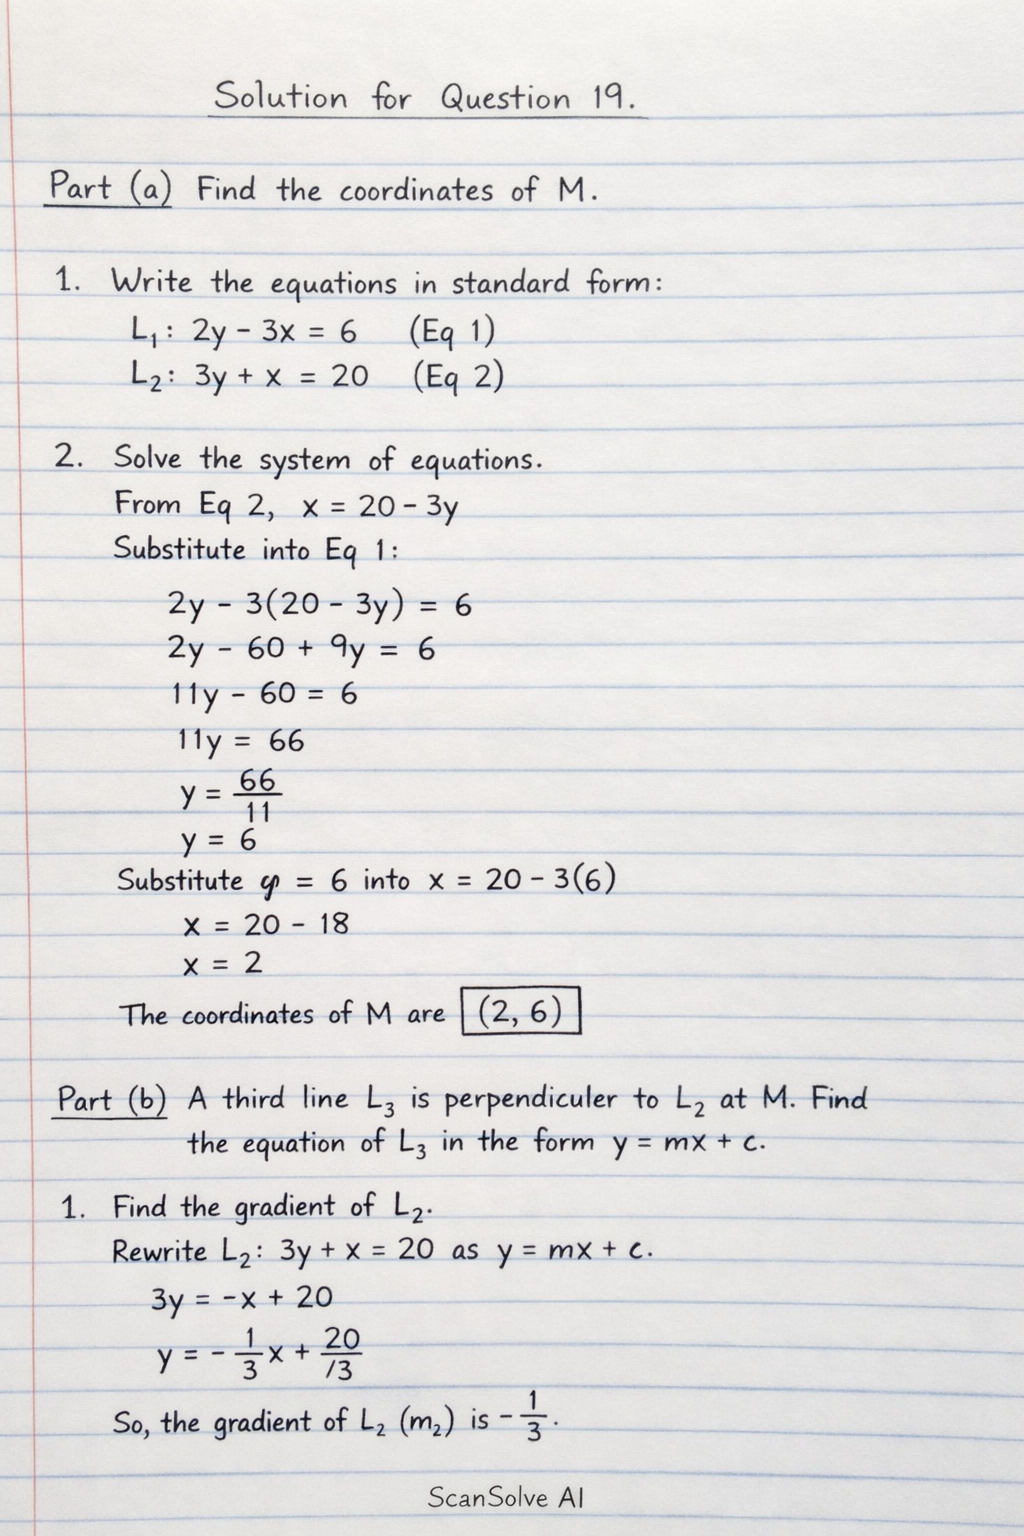 Solution for Question 19.
Part (a) Find the coordinates of M.
1. Write the equations in standard form:
L₁: 2y - 3x = 6 (Eq 1)
L₂: 3y + x = 20 (Eq 2)
2. Solve the system of equations.
From Eq 2, x = 20 - 3y
Substitute into Eq 1:
2y - 3(20 - 3y) = 6
2y - 60 + 9y = 6
11y - 60 = 6
11y = 66
y = 66/11
y = 6
Substitute y = 6 into x = 20 - 3(6)
x = 20 - 18
x = 2
The coordinates of M are (2, 6)
Part (b) A third line L₃ is perpendiculer to L₂ at M. Find
the equation of L₃ in the form y = mx + c.
1. Find the gradient of L₂.
Rewrite L₂: 3y + x = 20 as y = mx + c.
3y = -x + 20
y = -1/3 x + 20//3
So, the gradient of L₂ (m₂) is -1/3.
ScanSolve AI